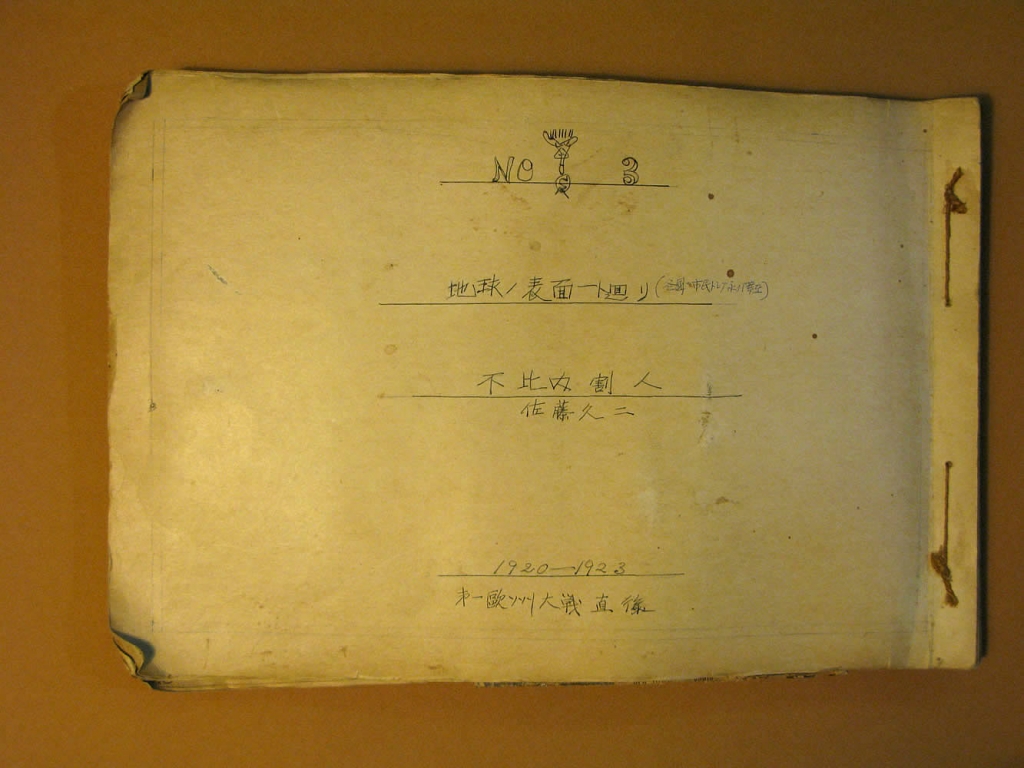 NO 3
地球ノ表面一ト廻リ
不比内割人
佐藤久二
1920—1923
第一歐州大戦直後